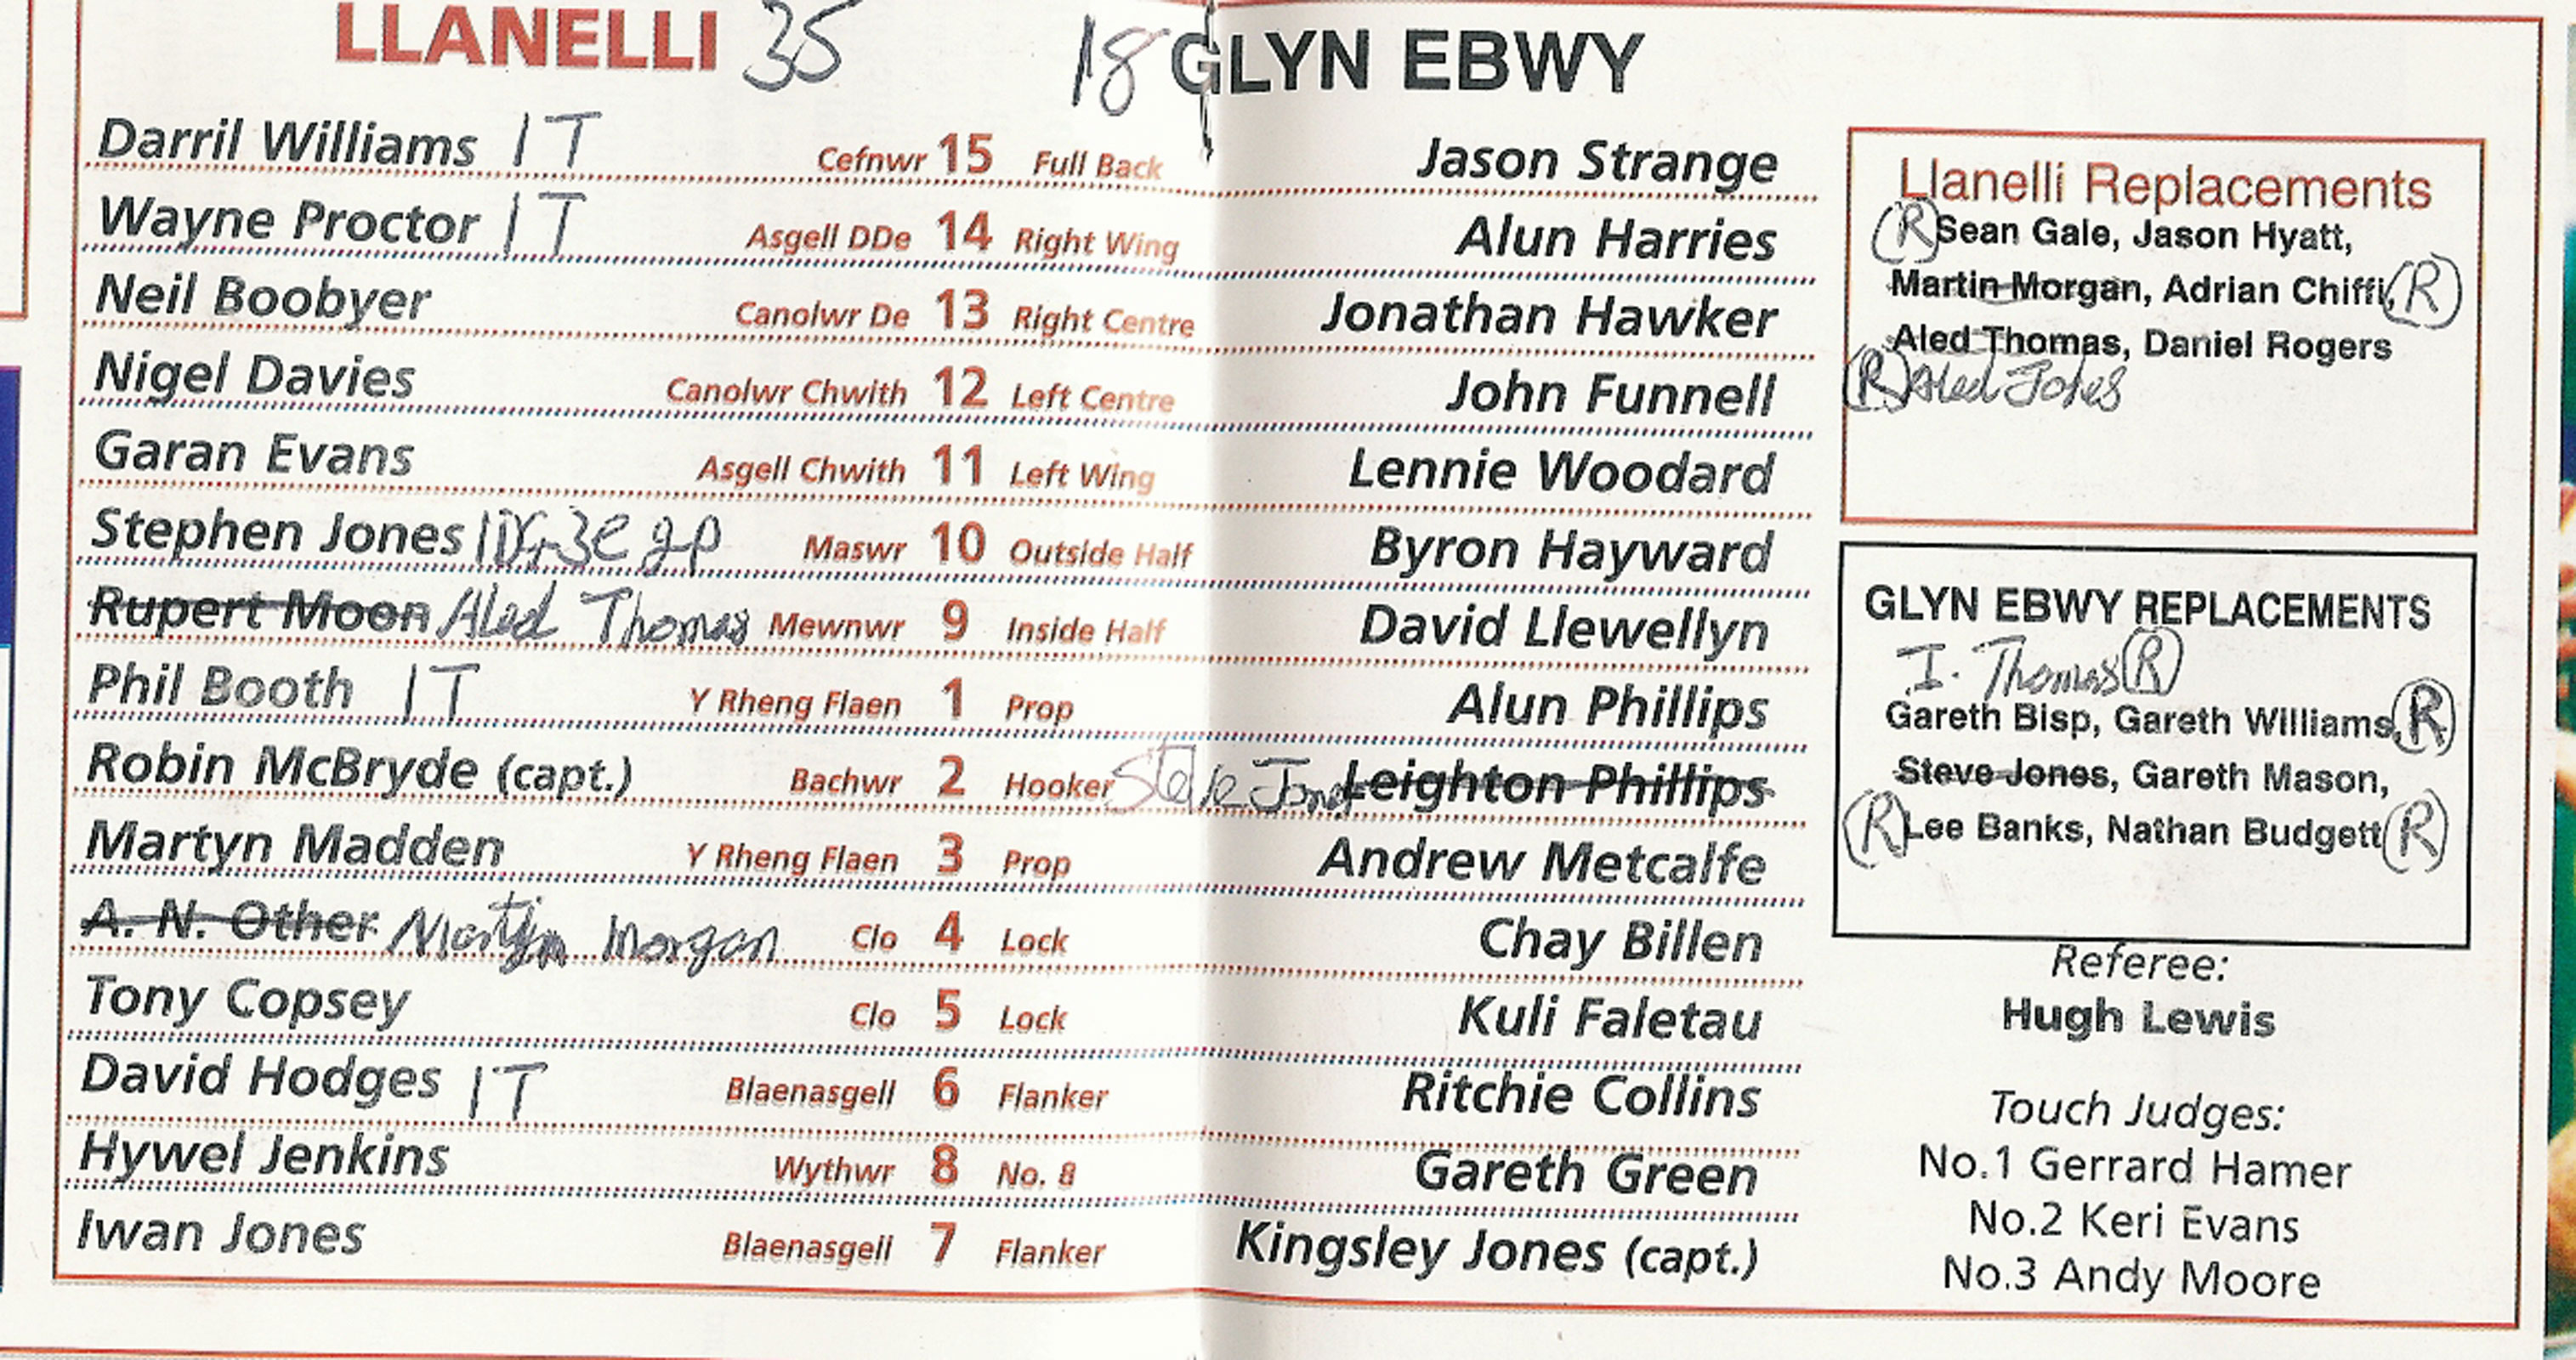 LLANELLI 35 18 GLYN EBWY
Darril Williams 1T Cefnwr 15 Full Back Jason Strange
Wayne Proctor 1T Asgell DDe 14 Right Wing Alun Harries
Neil Boobyer Canolwr De 13 Right Centre Jonathan Hawker
Nigel Davies Canolwr Chwith 12 Left Centre John Funnell
Garan Evans Asgell Chwith 11 Left Wing Lennie Woodard
Stephen Jones Maswr 10 Outside Half Byron Hayward
Rupert Moon Aled Thomas Mewnwr 9 Inside Half David Llewellyn
Phil Booth 1T Y Rheng Flaen 1 Prop Alun Phillips
Robin McBryde (capt.) Bachwr 2 Hooker Steve Jones Leighton Phillips
Martyn Madden Y Rheng Flaen 3 Prop Andrew Metcalfe
A. N. Other Martyn Morgan Clo 4 Lock Chay Billen
Tony Copsey Clo 5 Lock Kuli Faletau
David Hodges 1T Blaenasgell 6 Flanker Ritchie Collins
Hywel Jenkins Wythwr 8 No. 8 Gareth Green
Iwan Jones Blaenasgell 7 Flanker Kingsley Jones (capt.)
Llanelli Replacements
(R) Sean Gale, Jason Hyatt,
Martin Morgan, Adrian Chiffi, (R)
Aled Thomas, Daniel Rogers
(R) Aled Jones
GLYN EBWY REPLACEMENTS
I. Thomas (R)
Gareth Bisp, Gareth Williams, (R)
Steve Jones, Gareth Mason,
(R) Lee Banks, Nathan Budgett (R)
Referee:
Hugh Lewis
Touch Judges:
No.1 Gerrard Hamer
No.2 Keri Evans
No.3 Andy Moore